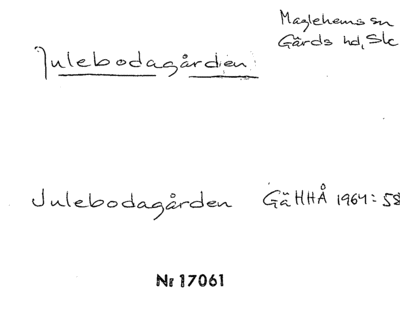 Maglehems sn
Gärds hd, Sk
Julebodagården
Julebodagården GäHHÅ 1964: 58
Nr 17061